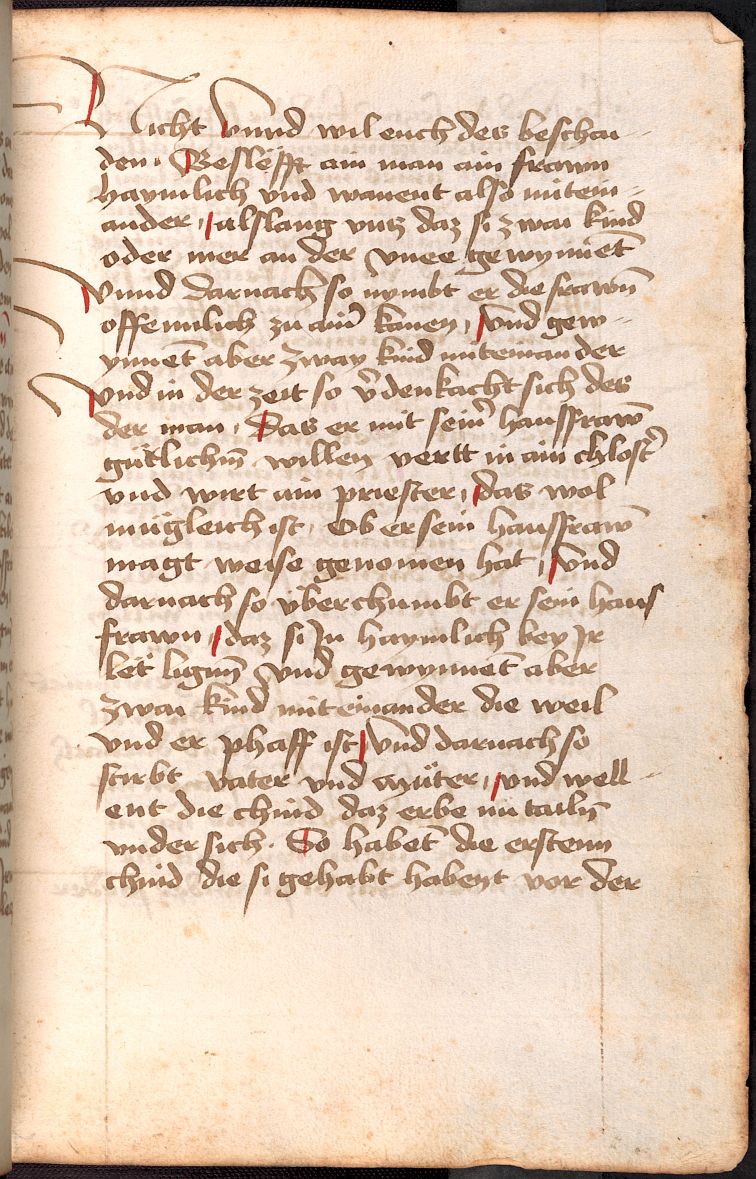 Nicht Vnnd wil euch des beschai-
den. Beslefft ain man ain frawn
haymlich vnd wanent also mitein-
ander, alslang vncz daz si zwai kind
oder mer an der vnee gewynnet̄
Vnnd darnach so nymbt er die frawn̄
offennlich zu ainr̄ konen, Vnd gew-
ynnet̄ aber zway kind miteinander
Vnd in der zeit so v̄denkacht sich des
der man, Das er mit seinr̄ hausfraw̄
gütlichm̄ willen vertt in ain chlostr̄
vnd wirt ain priester, das wol
mügleich ist, Ob er sein hausfraw̄
magt weise genomen hat, Vnd
darnach so überchumbt er sein haus
frawn, daz si In haymlich bey Ir
let ligen̄ Vnd gewynnet̄ aber
zwai kind miteinander die weil
vnd er phaff ist Vnd darnach so
stirbt vater vnd müter, vnd well-
ent die chind daz erbe nu tailn̄
vnder sich. So habet̄ die erstenn
chind die si gehabt habent vor der